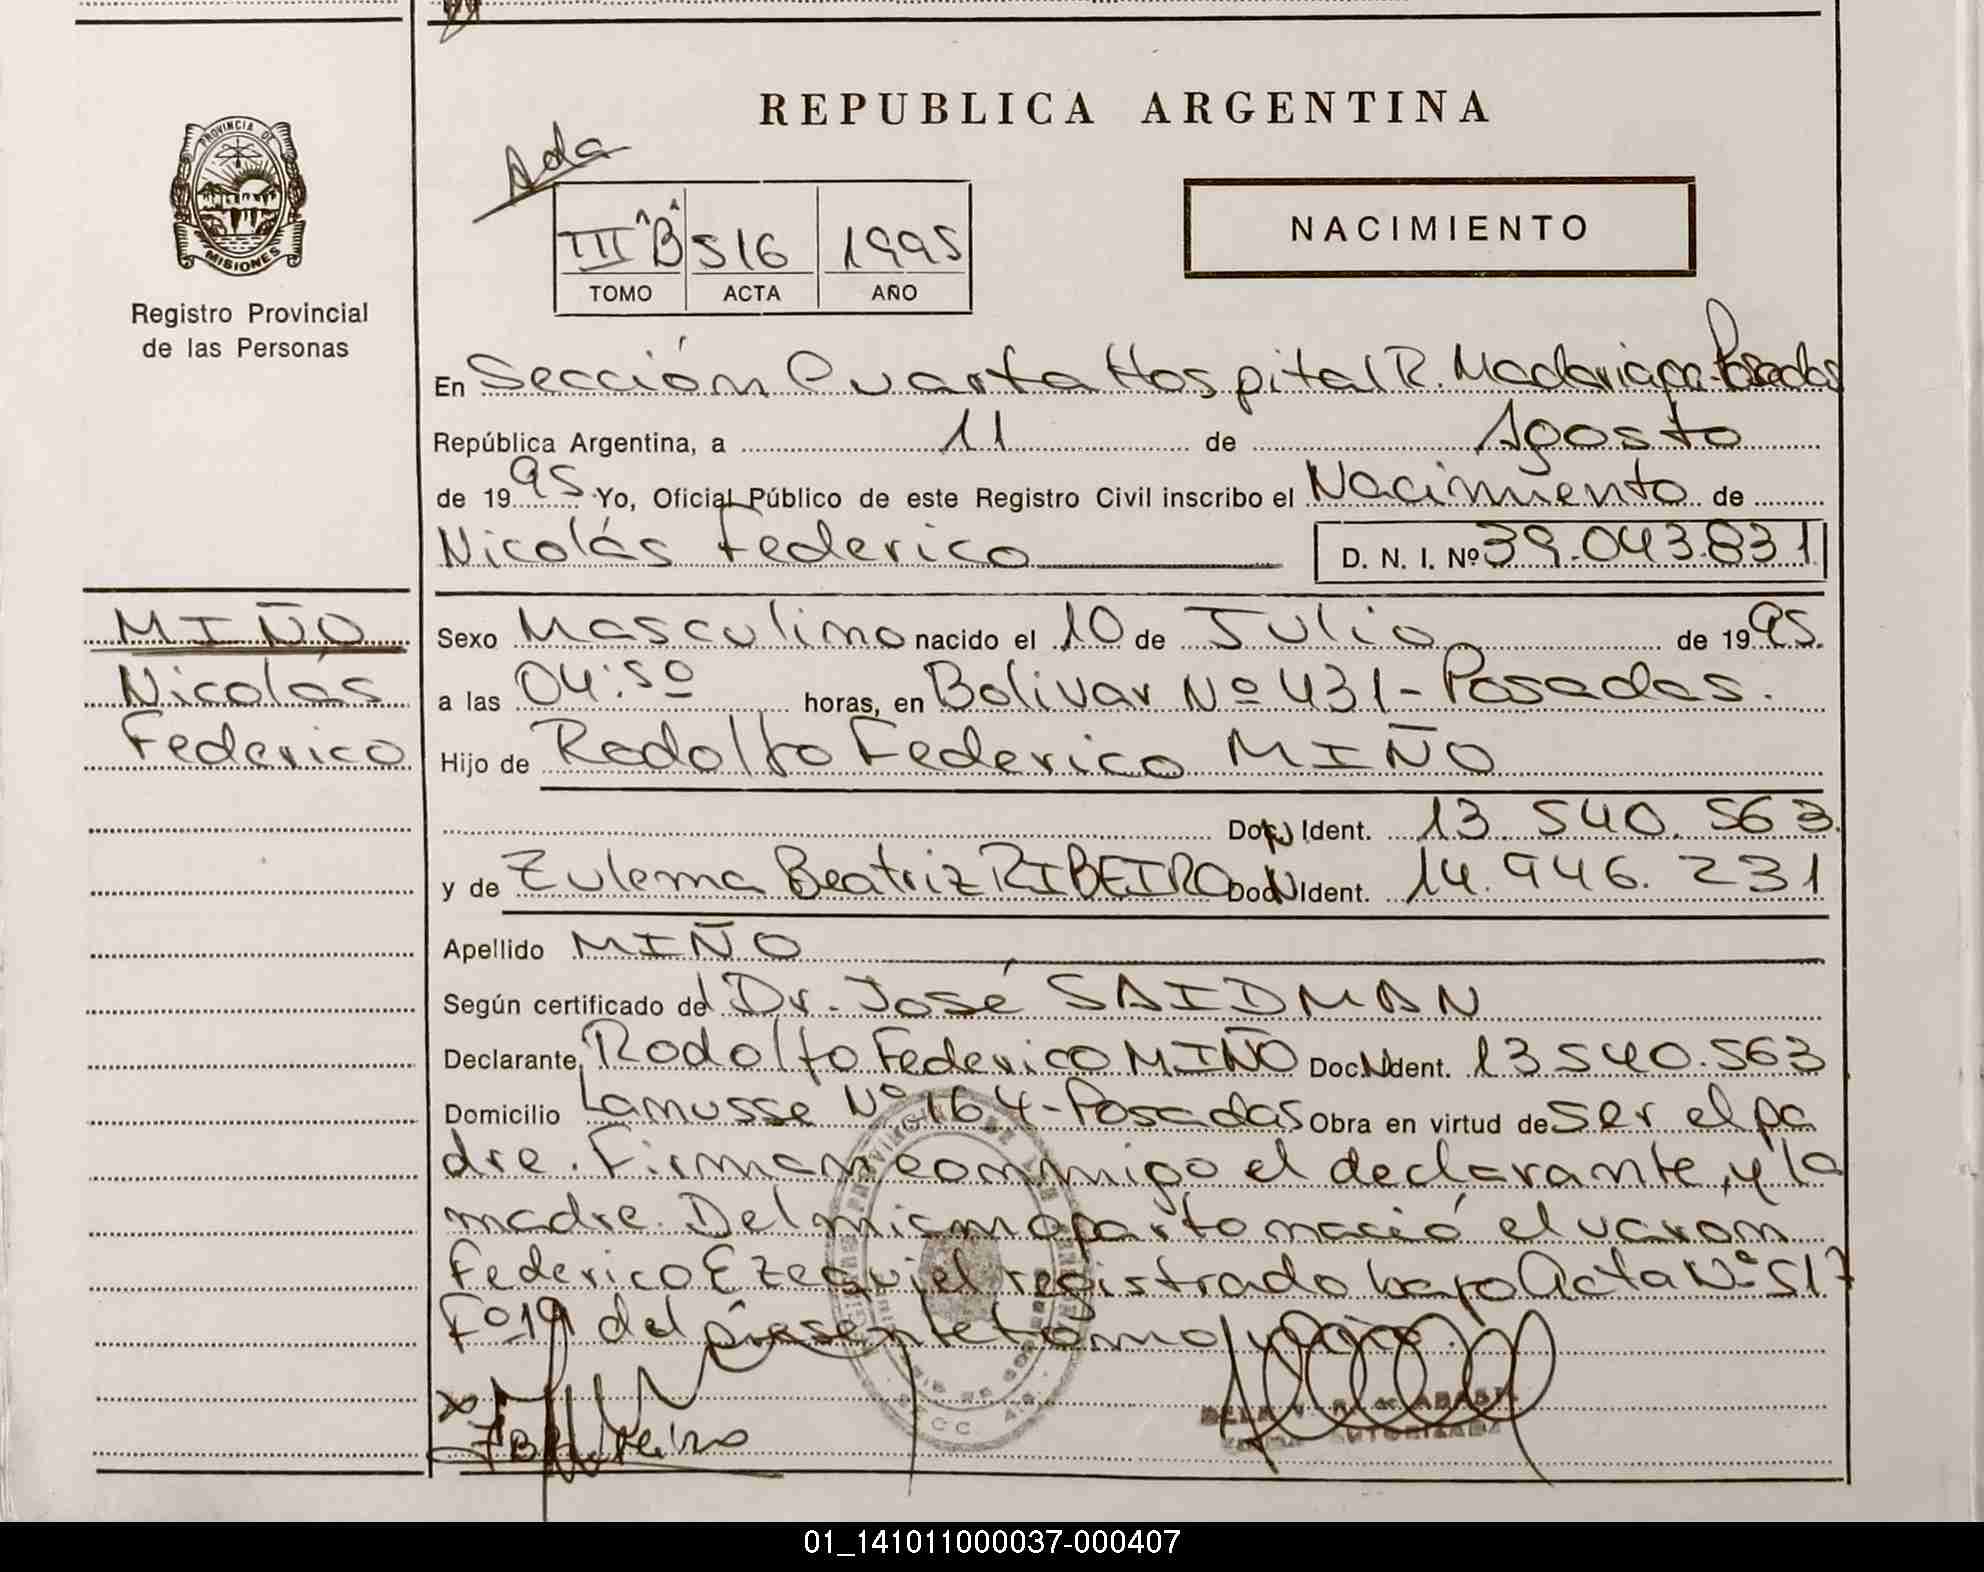 REPUBLICA ARGENTINA
PROVINCIA DE
MISIONES
Registro Provincial
de las Personas
Ada
III "B" 516 1995
TOMO ACTA AÑO
NACIMIENTO
En Sección Cuarta Hospital R. Madariaga-Posadas
República Argentina, a 11 de Agosto
de 1995 Yo, Oficial Público de este Registro Civil inscribo el Nacimiento de
Nicolás Federico D. N. I. Nº 39.043.831
MIÑO
Nicolás
Federico
Sexo Masculino nacido el 10 de Julio de 1995.
a las 04:50 horas, en Bolivar Nº 431 - Posadas.
Hijo de Rodolfo Federico MIÑO
Doc. N Ident. 13.540.563.
y de Zulema Beatriz RIBEIRO Doc N Ident. 14.946.231
Apellido MIÑO
Según certificado del Dr. José SAIDMAN
Declarante Rodolfo Federico MIÑO Doc. N Ident. 13.540.563
Domicilio Lamusse Nº 164 - Posadas Obra en virtud de ser el pa
dre. Firman conmigo el declarante, y la
madre. Del mismo parto nació el varon
Federico Ezequiel registrado bajo Acta Nº 517
Fº 19 del presente tomo y año.
01_141011000037-000407